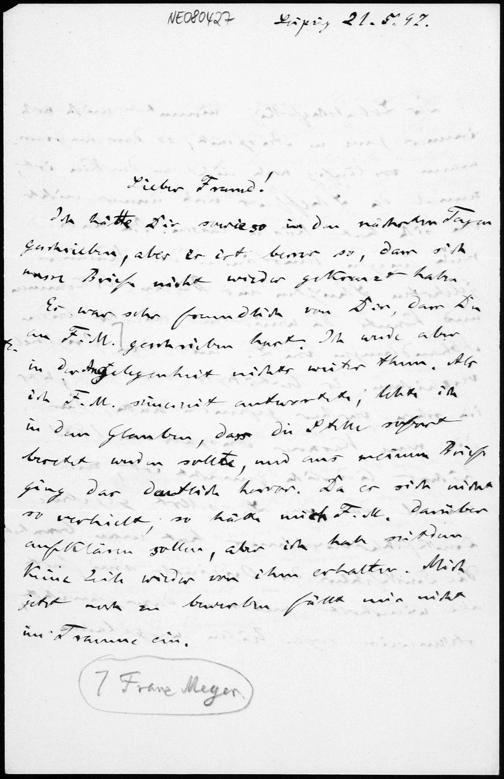 NE080427
Leipzig 21.5.47.
Lieber Freund!
Ich hätte Dir sowieso in den nächsten Tagen
geschrieben, aber es ist besser so, dass sich
unsre Briefe nicht wieder gekreuzt haben.
Es war sehr freundlich von Dir, dass Du
an F.M. geschrieben hast. Ich werde aber
in der Angelegenheit nichts weiter thun. Als
ich F.M. seinerzeit antwortete, lebte ich
in dem Glauben, dass die Stelle sofort
besetzt werden sollte, und aus meinem Briefe
ging das deutlich hervor. Da es sich nicht
so verhielt, so hätte mich F.M. darüber
aufklären sollen, aber ich habe seitdem
keine Zeile wieder von ihm erhalten. Mich
jetzt noch zu bewerben fällt mir nicht
im Traume ein.
Franz Meyer.